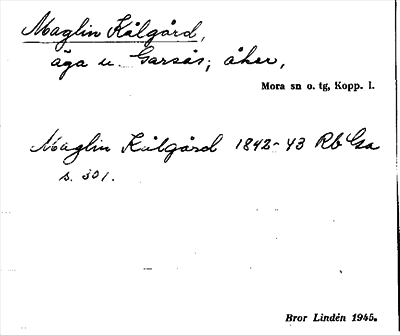 Maglin Kålgård,
äga u. Garsås; åker,
Mora sn o. tg, Kopp. l.
Maglin Kålgård 1842-43 Rb Gsa
s. 301.
Bror Lindén 1945.